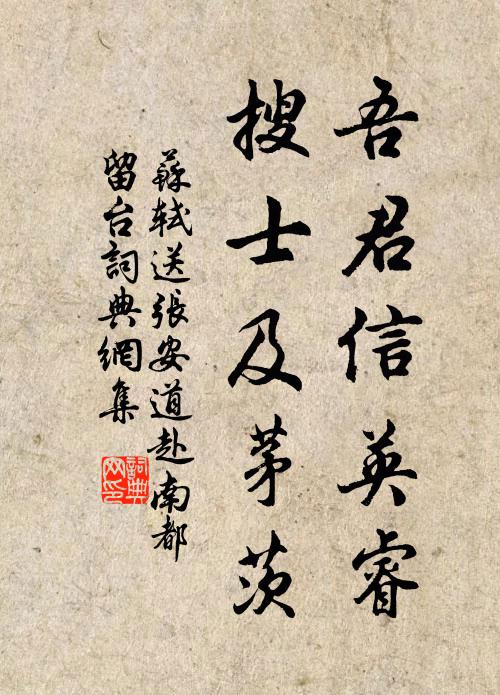 吾君信英睿
搜士及茅茨
蘇軾送張安道赴南都
留台詞典網集
詞典網印